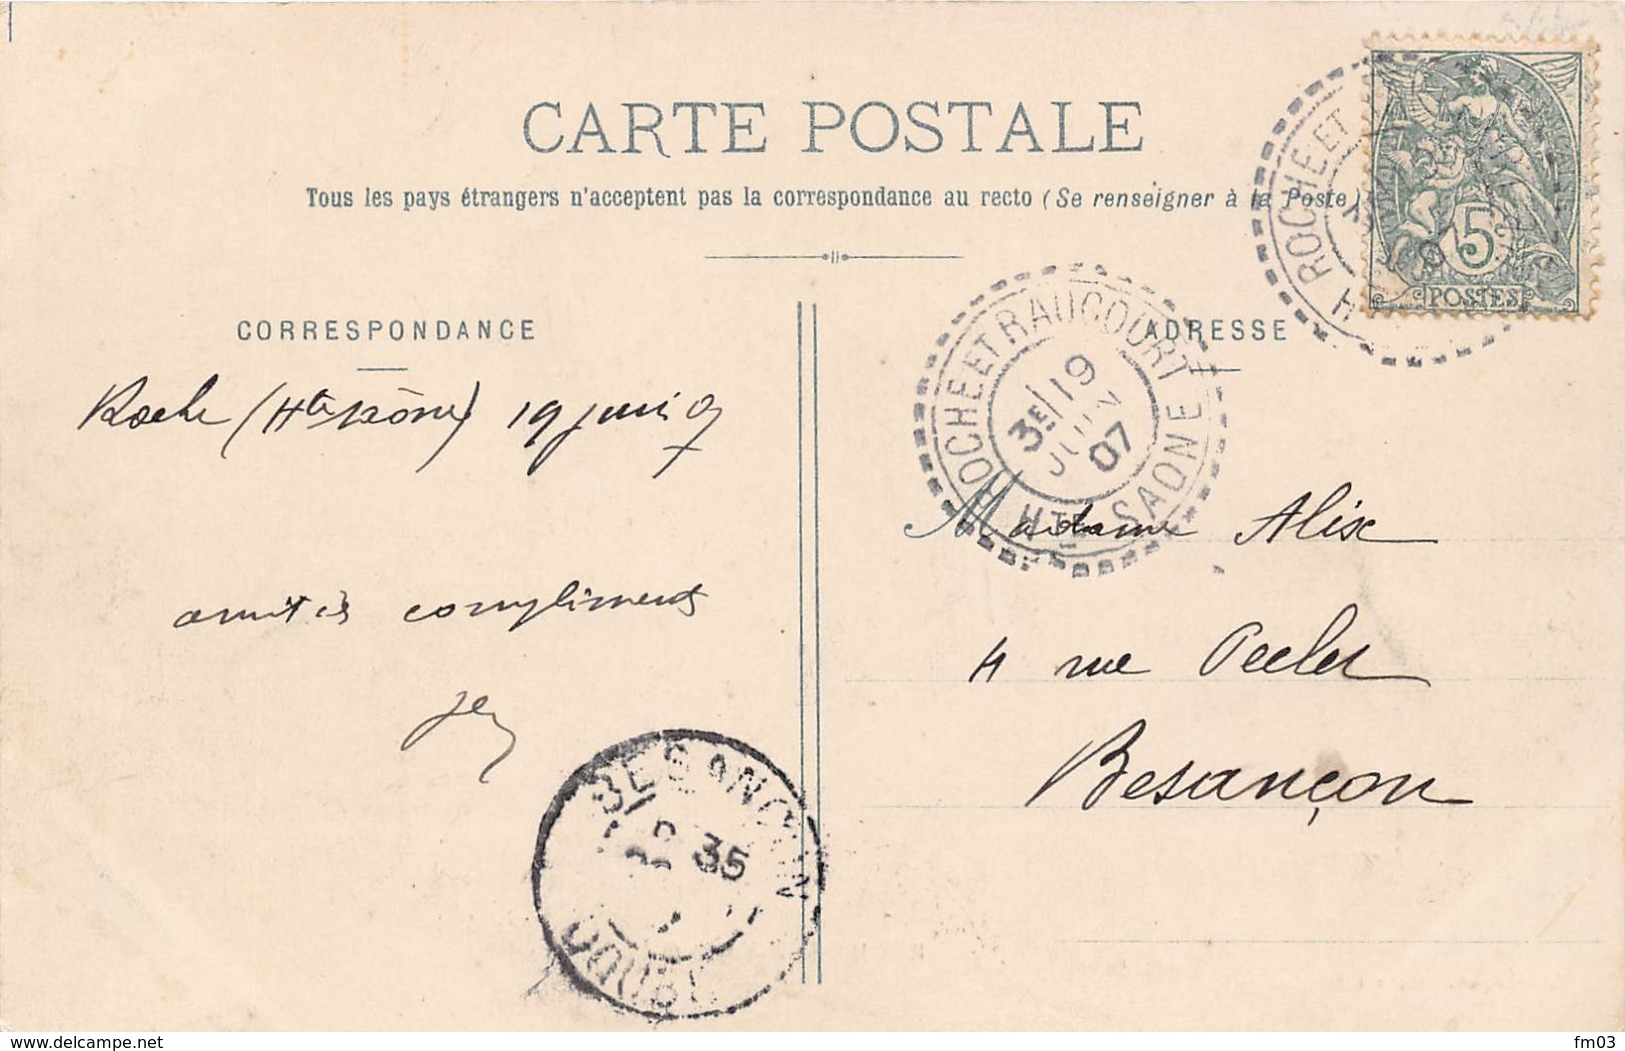 CARTE POSTALE
Tous les pays étrangers n'acceptent pas la correspondance au recto (Se renseigner à la Poste)
CORRESPONDANCE
Roche (Hte Saône) 19 juin 07
amitiés compliments
ADRESSE
ROCHE ET RAUCOURT
3E 19
JUIN
07
HTE SAONE
Madame Alix
4 rue Péclet
Besançon
ROCHE ET
H
07
5
POSTES
BESANCON
35
DOUBS
www.delcampe.net
fm03